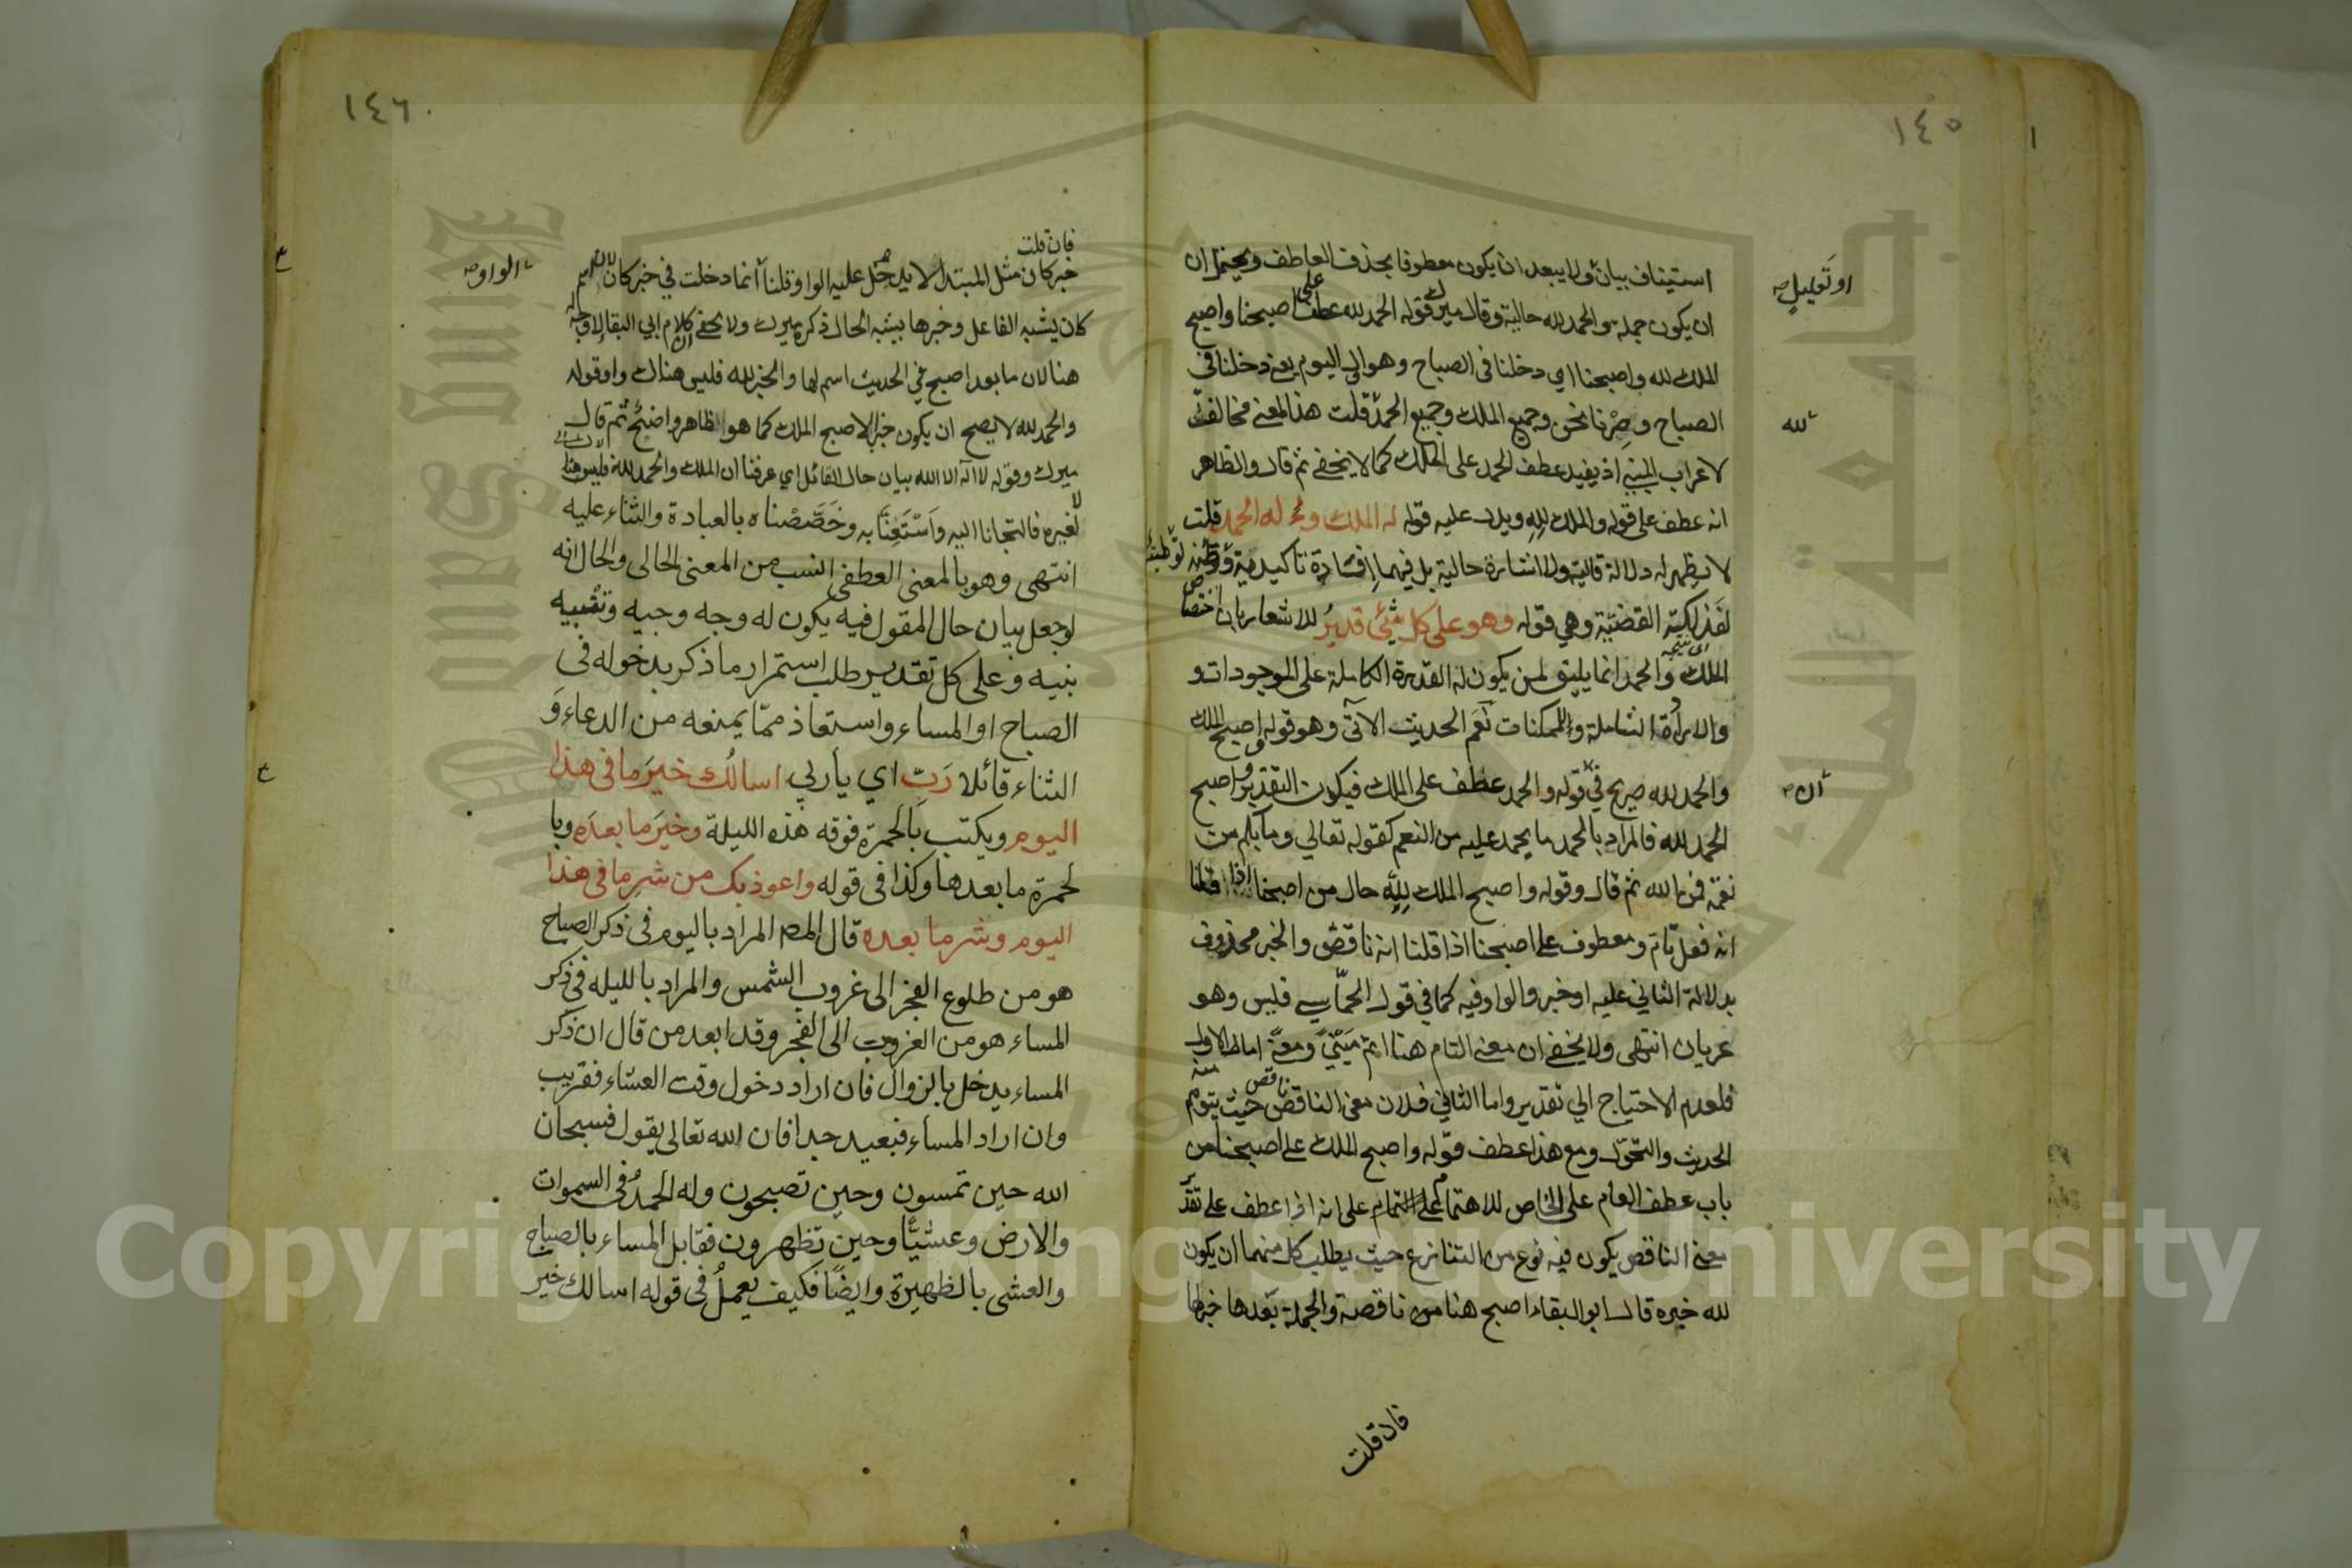 ١٤٥
استيناف بيان ولا يبعد ان يكون معطوفا بحذف العاطف ويحتمل ان
او تعليل صح
ان يكون جملة والحمد لله حالية وقال ميرك قوله الحمد لله عطف على اصبحنا واصبح
الملك لله واصبحنا اي دخلنا في الصباح وهو الى اليوم يعني دخلنا في
الصباح وصرنا نحن وجميع الملك وجميع الحمد قلت هذا المعنى مخالف
لله
لاعراب المبنى اذ يفيد عطف الحمد على الملك كما لا يخفى ثم قال والظاهر
انه عطف على قوله والملك لله ويدل عليه قوله له الملك وله الحمد قلت
لا يظهر له دلالة قالية ولا اشارة حالية بل فيهما افادة تاكيدية وتوطئة
لفذلكة القضية وهي قوله وهو على كل شيئ قدير للاشعار بان اختصاص
الملك والحمد انما يليق لمن يكون له القدرة الكاملة على الموجودات و
والارادة الشاملة والممكنات نعم الحديث الآتي وهو قوله اصبح الملك
والحمد لله صريح في قوله والحمد عطف على الملك فيكون التقدير واصبح
ان صح
الحمد لله فالمراد بالحمد ما يحمد عليه من النعم كقوله تعالى وما بكم من
نعمة فمن الله ثم قال وقوله واصبح الملك لله حال من اصبحنا اذا قلنا
انه فعل تام ومعطوف على اصبحنا اذا قلنا انه ناقص والخبر محذوف
بدلالة الثاني عليه او خبر والواو فيه كما في قول الحماسي فليس وهو
عريان انتهى ولا يخفى ان معنى التام هنا اتم مبنى ومعنى اما الاول
فلعدم الاحتياج الى تقدير واما الثاني فلان معنى الناقص ناقص حيث يتوهم منه
الحدوث والتحول ومع هذا عطف قوله واصبح الملك على اصبحنا من
باب عطف العام على الخاص للاهتمام على التمام على انه اذا عطف على تقدير
معنى الناقص يكون فيه نوع من التنازع حيث يطلب كل منهما ان يكون
لله خبره قال ابو البقاء اصبح هنا من ناقصة والجملة بعدها خبرها
فان قلت
١٤٦
فان قلت
خبر كان مثل المبتدا لا يدخل عليه الواو قلنا انما دخلت في خبر كان لان اسم
الواو صح
كان يشبه الفاعل وخبرها يشبه الحال ذكره ميرك ولا يخفى ان كلام ابي البقاء لا وجه له
هنا لان ما بعد اصبح في الحديث اسم لها والخبر لله فليس هناك واو قوله
والحمد لله لا يصح ان يكون خبرا لاصبح الملك كما هو ظاهر واضح ثم قال
ميرك وقوله لا اله الا الله بيان حال القائل اي عرفنا ان الملك والحمد لله فليس هنا
لغيره فالتجانا اليه واستعنا به وخصصناه بالعبادة والثناء عليه
انتهى وهو بالمعنى العطفي انسب من المعنى الحالى والحال انه
لو جعل بيان حال المقول فيه يكون له وجه وجيه وتنبيه
نبيه وعلى كل تقدير طلب استمرار ما ذكر بدخوله في
الصباح او المساء واستعاذ مما يمنعه من الدعاء و
الثناء قائلا رب اي يا ربي اسالك خير ما في هذا
اليوم ويكتب بالحمرة فوقه هذه الليلة وخير ما بعده وبا
لحمرة ما بعدها وكذا في قوله واعوذ بك من شر ما في هذا
اليوم وشر ما بعده قال المص المراد باليوم في ذكر الصباح
هو من طلوع الفجر الى غروب الشمس والمراد بالليله في ذكر
المساء هو من الغروب الى الفجر وقد ابعد من قال ان ذكر
المساء يدخل بالزوال فان اراد دخول وقت العشاء فقريب
وان اراد المساء فبعيد جدا فان الله تعالى يقول فسبحان
الله حين تمسون وحين تصبحون وله الحمد في السموات
والارض وعشيا وحين تظهرون فقابل المساء بالصباح
والعشى بالظهيرة وايضا فكيف يعمل في قوله اسالك خير
جامعة الملك سعود
King Saud University
1957
Copyright © King Saud University